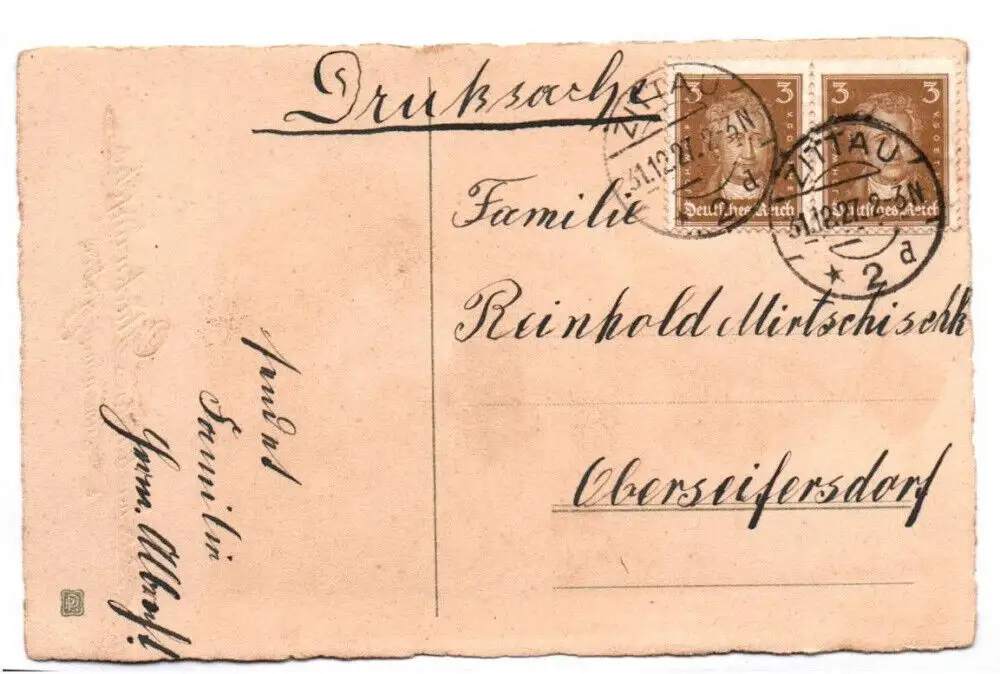 Druksache
3 3
3 3
Deutsches Reich
Deutsches Reich
ZITTAU
31.12.27. 2-3N
2 d
ZITTAU
31.12.27. 2-3N
* 2 d
Familie
Reinhold Mirtschischk
Oberseifersdorf
sendet
Familie
Herm.